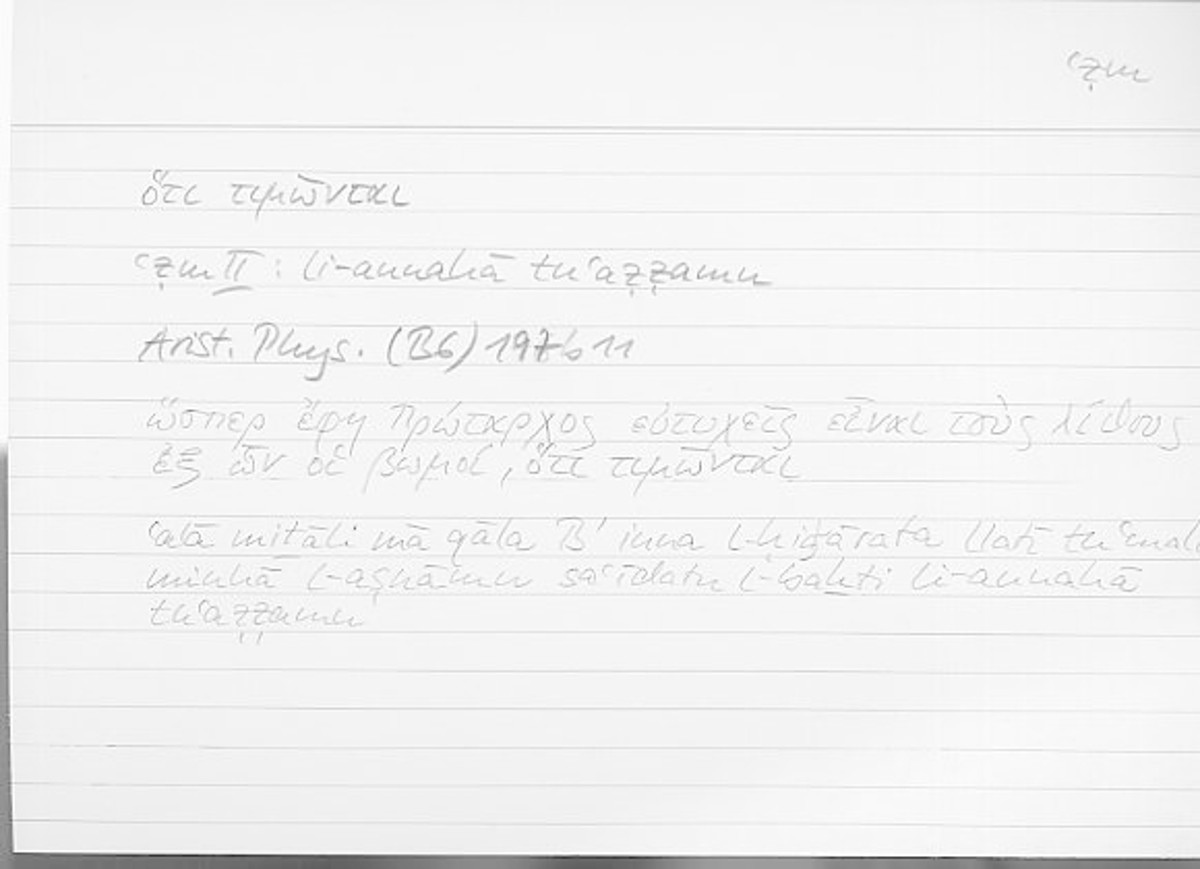 ʿẓm
ὅτι τιμῶνται
ʿẓm II : li-annahā tuʿaẓẓamu
Arist. Phys. (B6) 197b11
ὥσπερ ἔφη Πρώταρχος εὐτυχεῖς εἶναι τοὺς λίθους
ἐξ ὧν οἱ βωμοί, ὅτι τιμῶνται
ʿalā miṯāli mā qāla B' inna l-ḥiǧārata llatī
minhā l-aṣnāmu saʿīdatu l-baḫti li-annahā
tuʿaẓẓamu